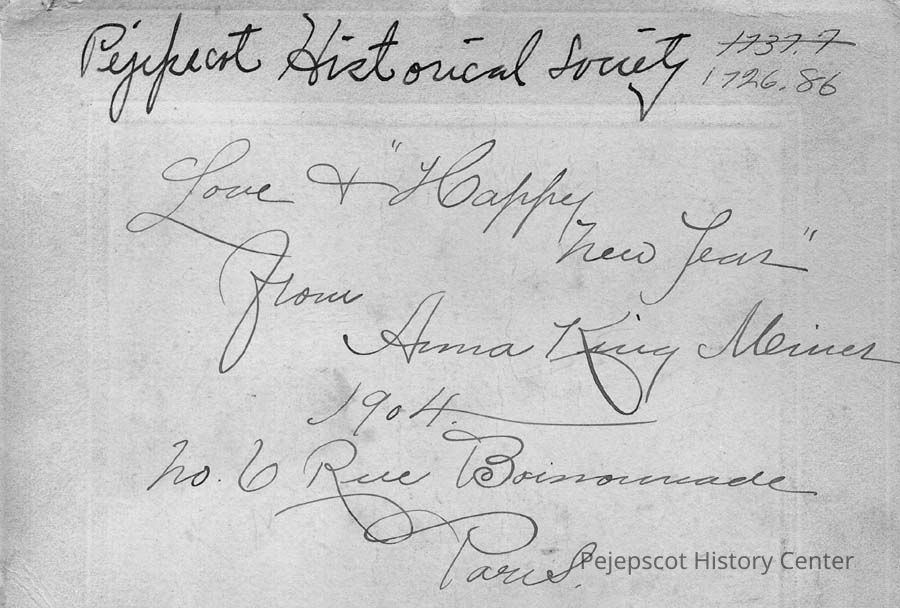 Pejepscot Historical Society
1737.7
1726.86
Love & "Happy
New Year"
From
Anna King Miner
1904.
No. 6 Rue Boissonnade
Paris.
Pejepscot History Center